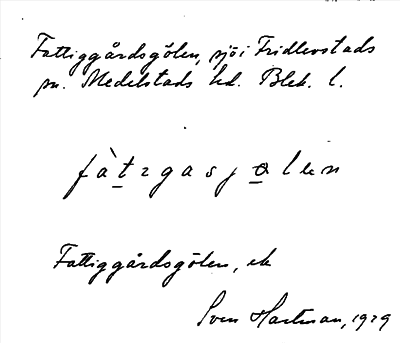 Fattiggårdsgölen, sjö i Fridlevstads
sn. Medelstads hd. Blek. l.
fàtɩgasjølen
Fattiggårdsgölen, ek
Sven Hartman, 1929